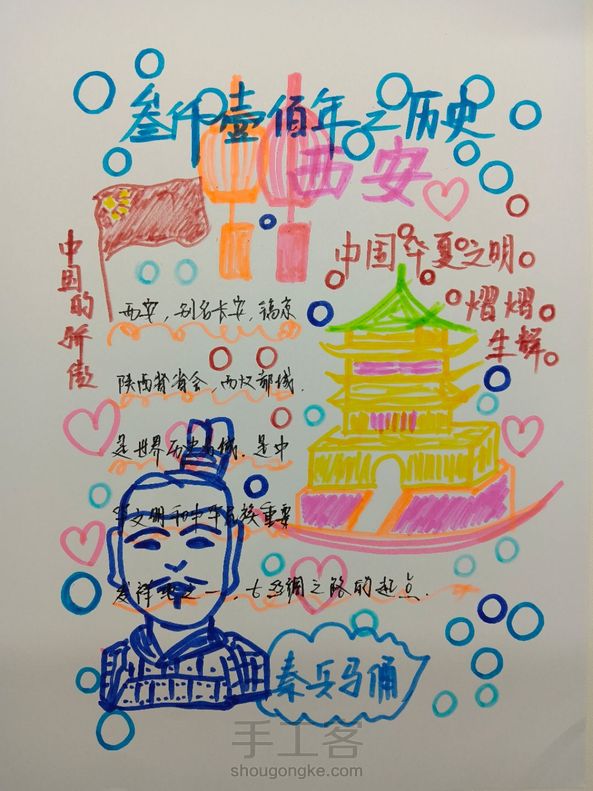 叁仟壹佰年之历史
西安
中国的骄傲
中国华夏文明。
熠熠。
生辉。
西安，别名长安，镐京
陕西省省会，西汉都城.
是世界历史名城.是中
华文明和中华民族重要
发祥地之一，古丝绸之路的起点.
秦兵马俑
手工客
shougongke.com